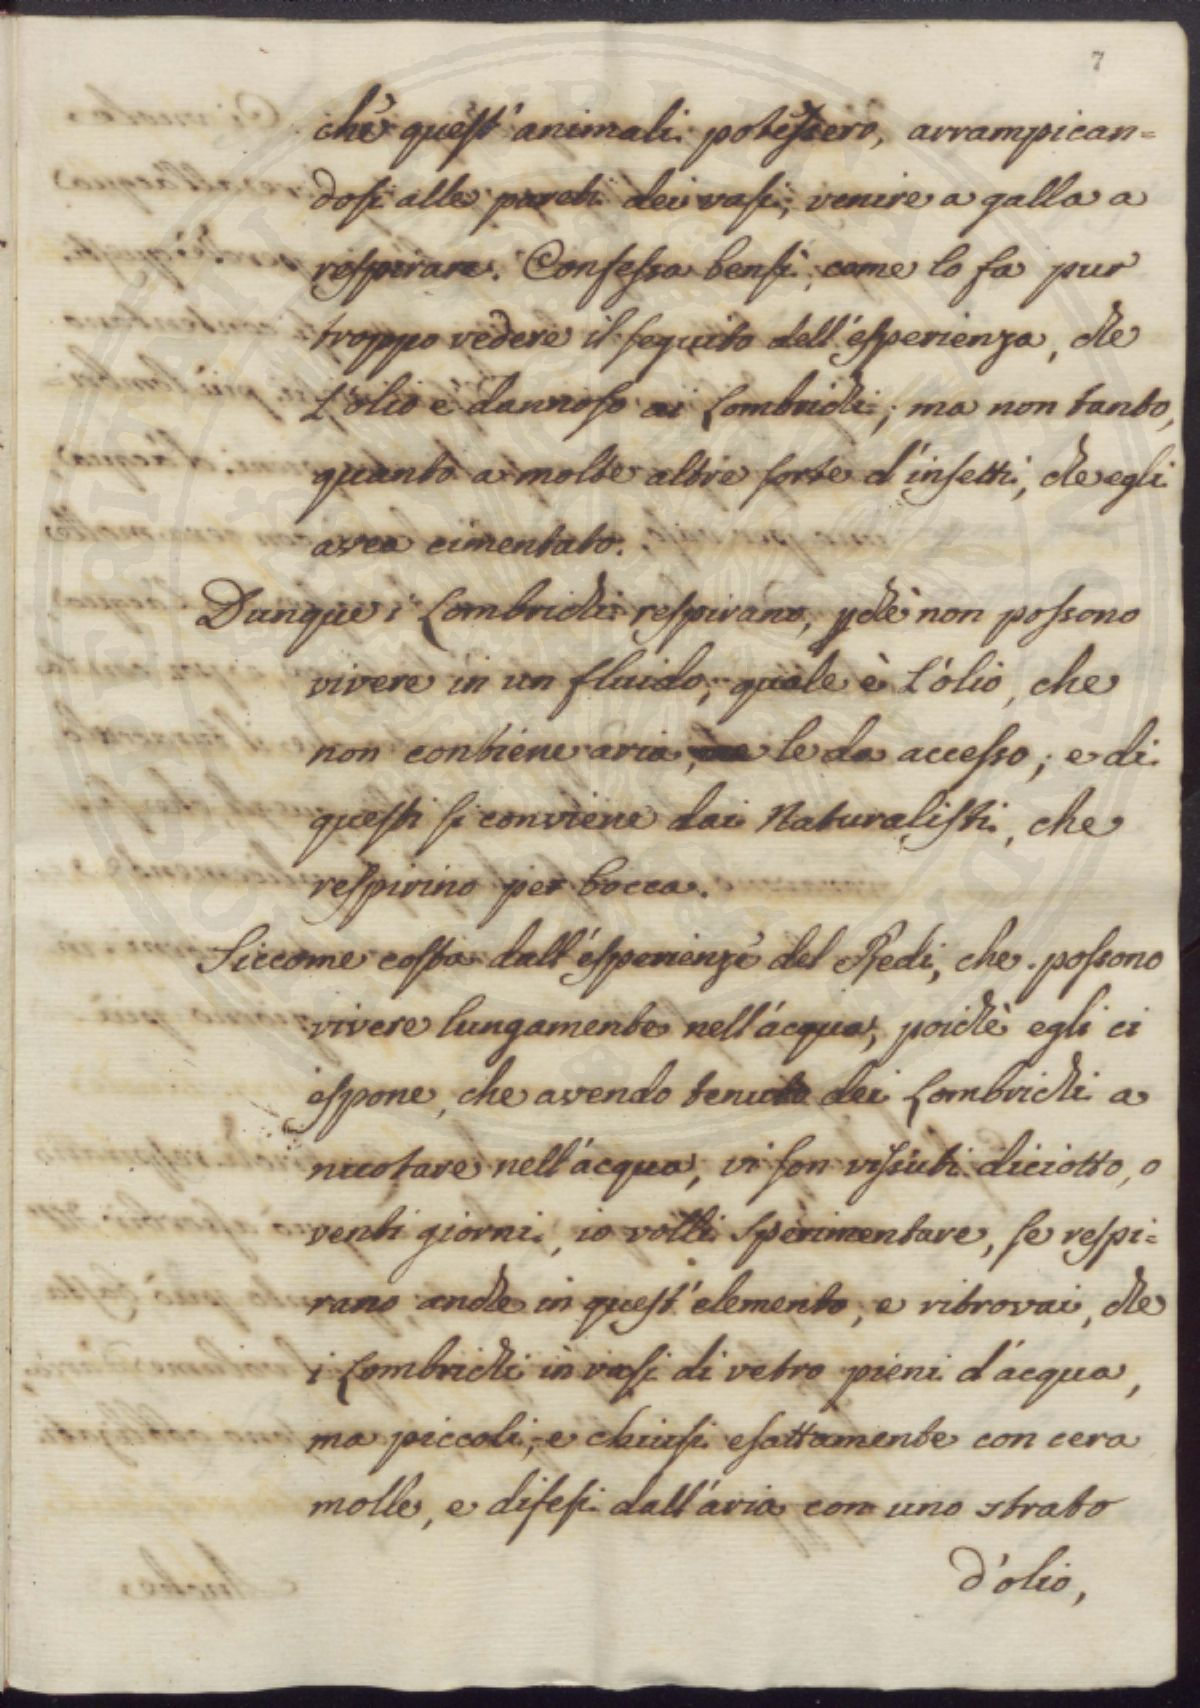 7
chè quest' animali potessero, arrampican=
dosi alle pareti dei vasi, venire a galla a
respirare. Confessa bensì, come lo fa pur
troppo vedere il seguito dell'esperienza, che
l'olio è dannoso ai Lombrichi; ma non tanto,
quanto a molte altre sorte d'insetti, che egli
avea cimentato.
Dunque i Lombrichi respirano, pchè non possono
vivere in un fluido, quale è l'olio, che
non contiene aria, le da accesso; e di
questi si conviene dai Naturalisti, che
respirino per bocca.
Siccome costa dall'esperienze del Redi, che possono
vivere lungamente nell'acqua, poichè egli ci
espone, che avendo tenuto dei Lombrichi a
nuotare nell'acqua, vi son vissuti diciotto, o
venti giorni, io volli sperimentare, se respi=
rano anche in quest'elemento, e ritrovai, che
i Lombrichi in vasi di vetro pieni d'acqua,
ma piccoli, e chiusi esattamente con cera
molle, e difesi dall'aria con uno strato
d'olio,